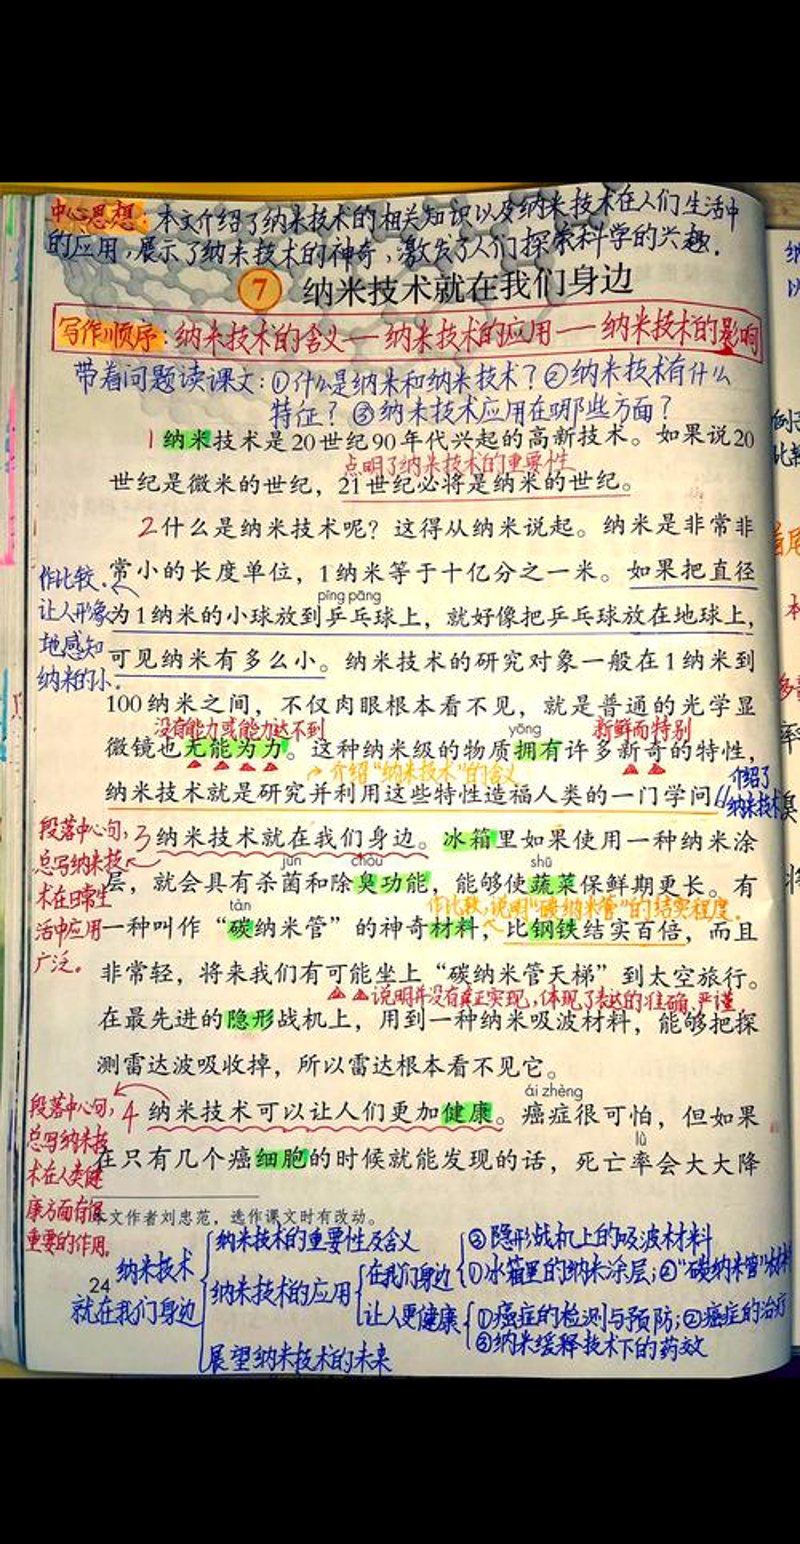 中心思想：本文介绍了纳米技术的相关知识以及纳米技术在人们生活中
的应用，展示了纳米技术的神奇，激发了人们探索科学的兴趣．
7 纳米技术就在我们身边
写作顺序：纳米技术的含义——纳米技术的应用——纳米技术的影响
带着问题读课文：①什么是纳米和纳米技术？②纳米技术有什么
特征？③纳米技术应用在哪些方面？
1纳米技术是20世纪90年代兴起的高新技术。如果说20
点明了纳米技术的重要性
世纪是微米的世纪，21世纪必将是纳米的世纪。
2什么是纳米技术呢？这得从纳米说起。纳米是非常非
常小的长度单位，1纳米等于十亿分之一米。如果把直径
作比较．
让人形象
地感知
纳米的小．
pīng pāng
为1纳米的小球放到乒乓球上，就好像把乒乓球放在地球上，
可见纳米有多么小。纳米技术的研究对象一般在1纳米到
100纳米之间，不仅肉眼根本看不见，就是普通的光学显
没有能力或能力达不到 yōng 新鲜而特别
微镜也无能为力。这种纳米级的物质拥有许多新奇的特性，
介绍“纳米技术”的含义
纳米技术就是研究并利用这些特性造福人类的一门学问。
介绍了
纳米技术
段落中心句，
总写纳米技
术在日常生
活中应用
广泛。
3纳米技术就在我们身边。冰箱里如果使用一种纳米涂
jūn chòu shū
层，就会具有杀菌和除臭功能，能够使蔬菜保鲜期更长。有
tàn 作比较，说明“碳纳米管”的结实程度．
一种叫作“碳纳米管”的神奇材料，比钢铁结实百倍，而且
非常轻，将来我们有可能坐上“碳纳米管天梯”到太空旅行。
说明并没有真正实现，体现了表达的准确、严谨．
在最先进的隐形战机上，用到一种纳米吸波材料，能够把探
测雷达波吸收掉，所以雷达根本看不见它。
ái zhèng
段落中心句，
总写纳米技
术在人类健
康方面有很
重要的作用．
4 纳米技术可以让人们更加健康。癌症很可怕，但如果
lǜ
在只有几个癌细胞的时候就能发现的话，死亡率会大大降
本文作者刘忠范，选作课文时有改动。
24
纳米技术
就在我们身边
纳米技术的重要性及含义
纳米技术的应用
在我们身边
③隐形战机上的吸波材料
①冰箱里的纳米涂层；②“碳纳米管”材料
让人更健康
①癌症的检测与预防；②癌症的治疗
③纳米缓释技术下的药效
展望纳米技术的未来